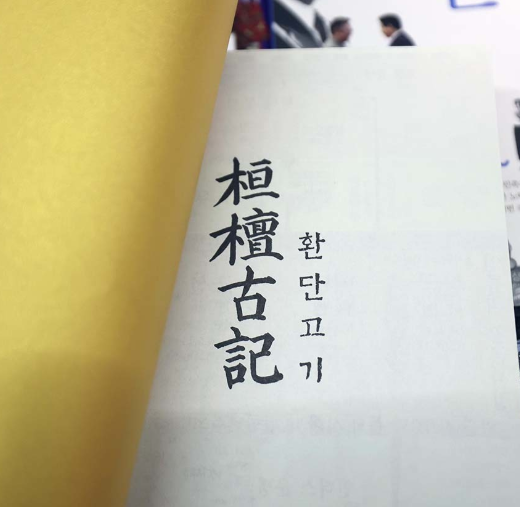 桓檀古記
환단고기